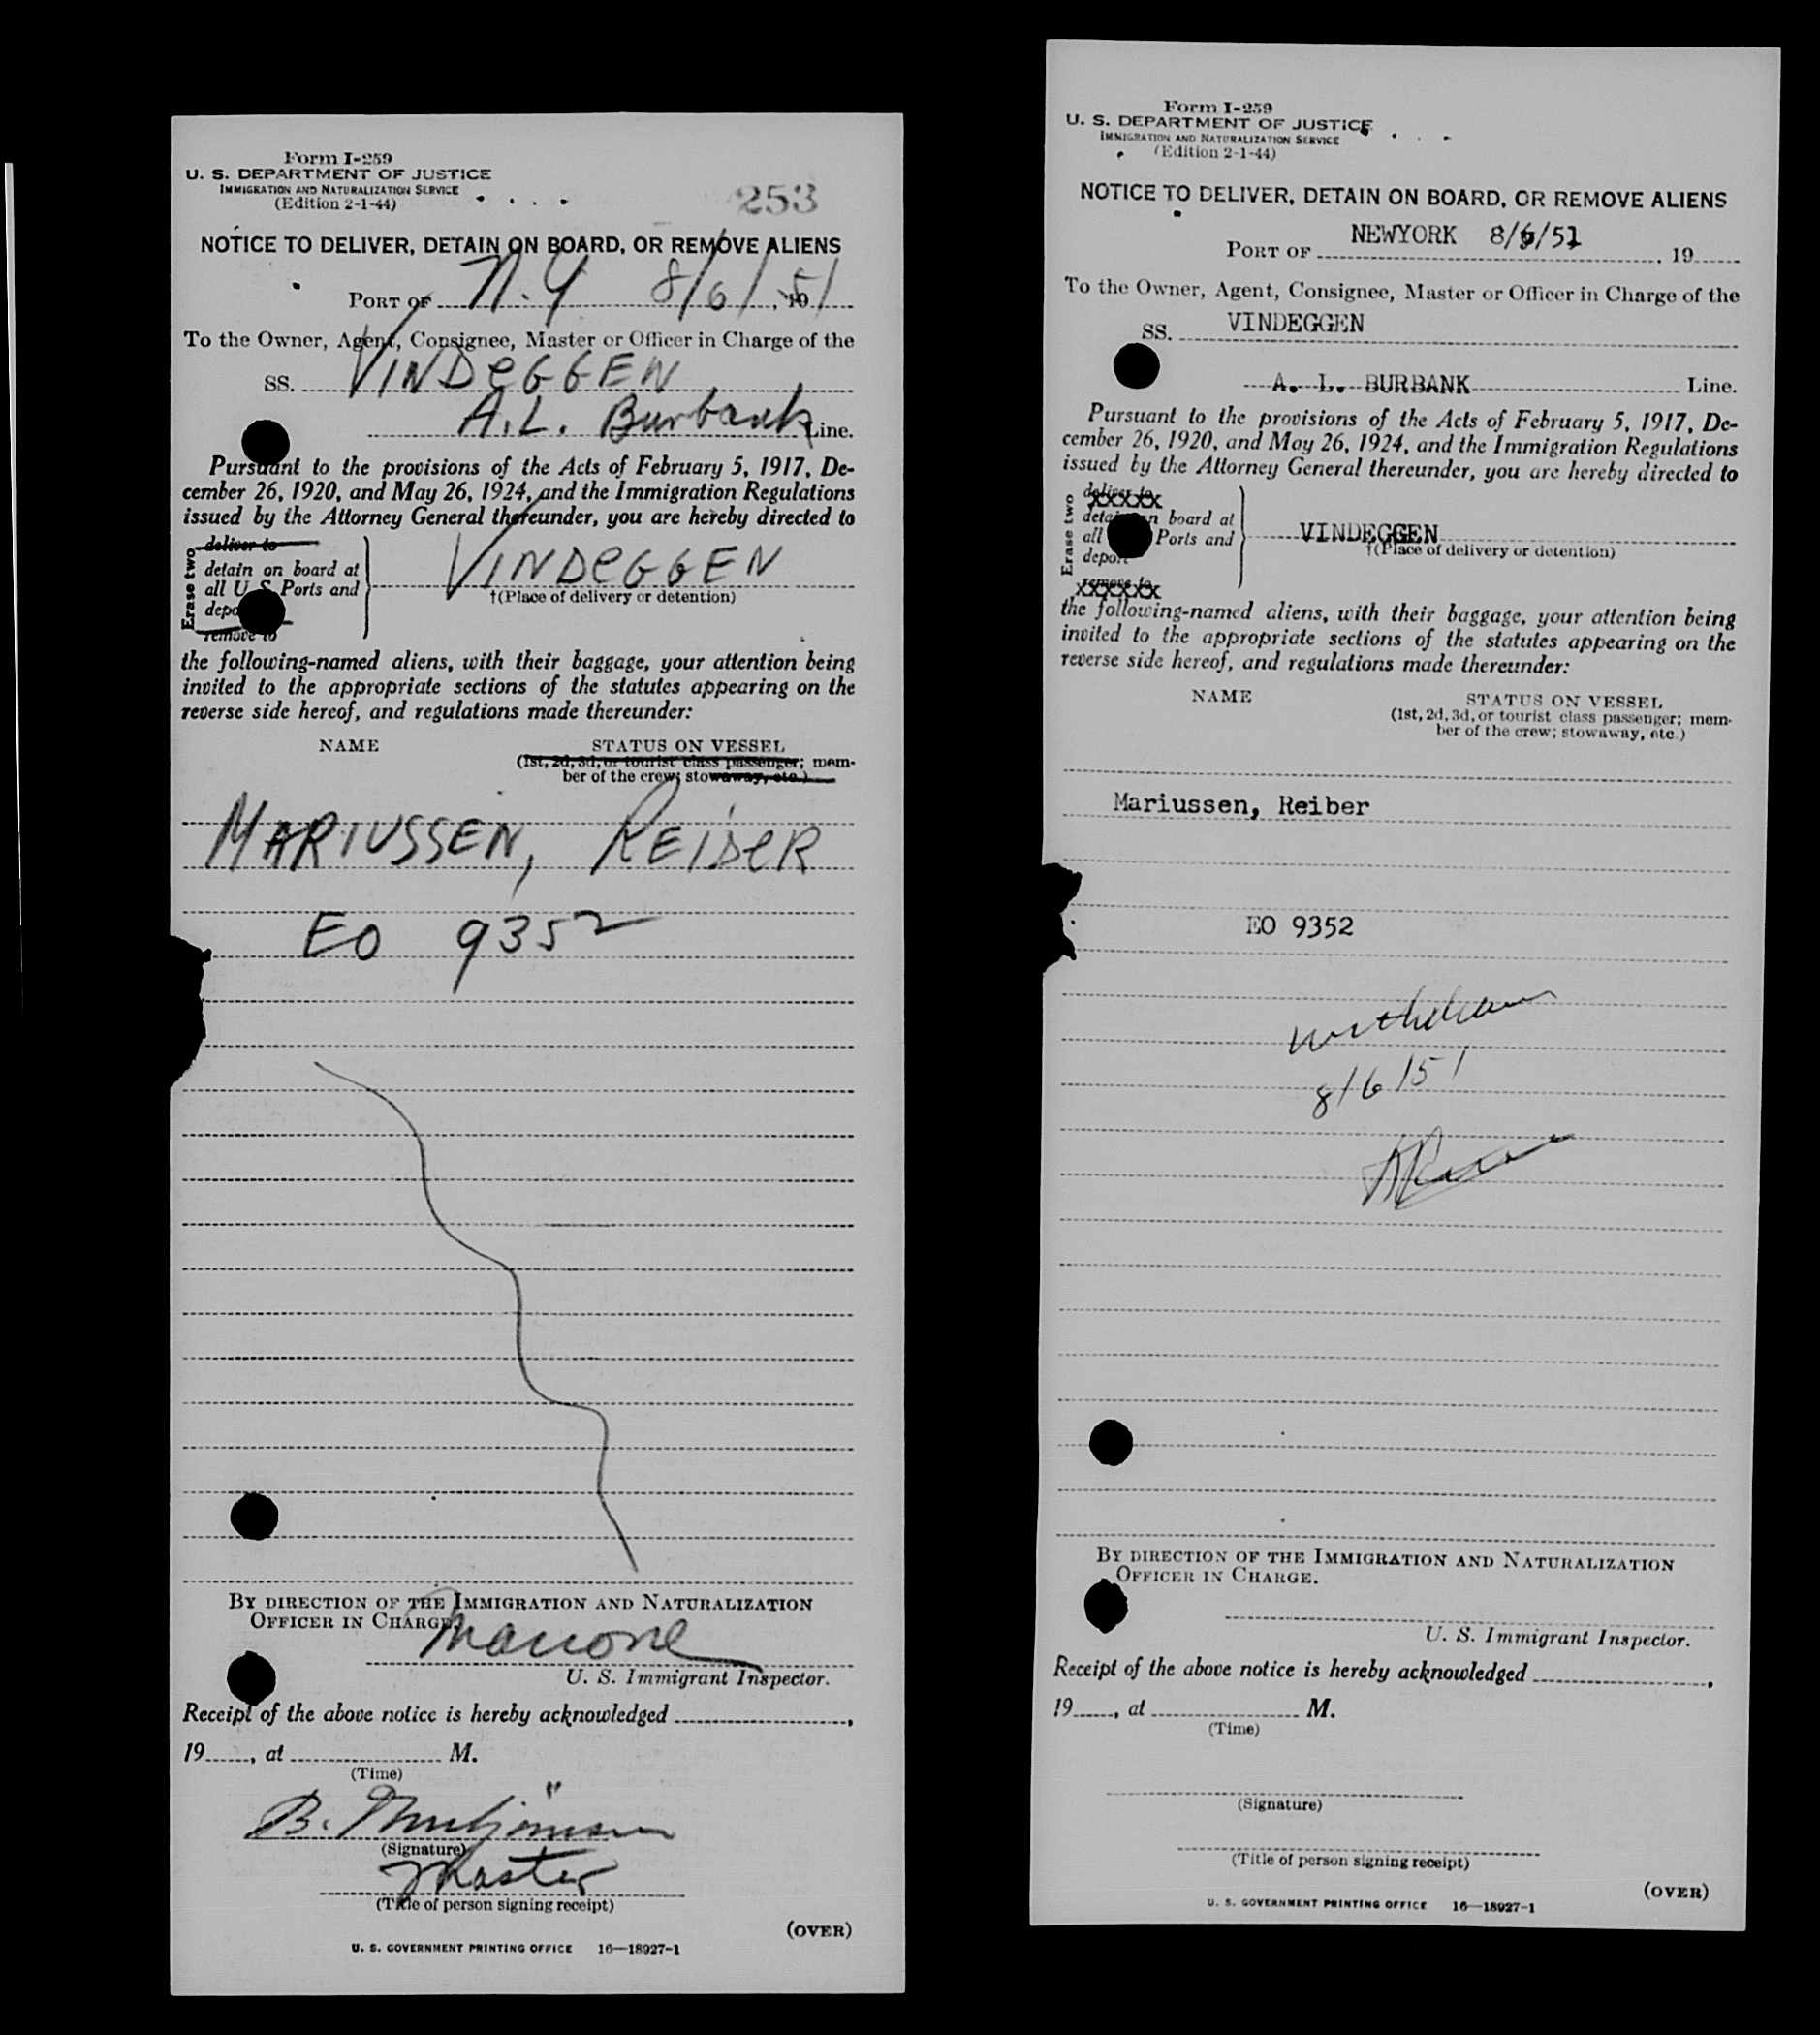 Form I-259
U. S. DEPARTMENT OF JUSTICE
IMMIGRATION AND NATURALIZATION SERVICE
(Edition 2-1-44)
253
NOTICE TO DELIVER, DETAIN ON BOARD, OR REMOVE ALIENS
PORT OF N.Y 8/6/51, 19
To the Owner, Agent, Consignee, Master or Officer in Charge of the
SS. VINDEGGEN
A.L. Burbank Line.
Pursuant to the provisions of the Acts of February 5, 1917, De-
cember 26, 1920, and May 26, 1924, and the Immigration Regulations
issued by the Attorney General thereunder, you are hereby directed to
Erase two
deliver to
detain on board at
all U S Ports and
depo
remove to
VINDEGGEN
†(Place of delivery or detention)
the following-named aliens, with their baggage, your attention being
invited to the appropriate sections of the statutes appearing on the
reverse side hereof, and regulations made thereunder:
NAME STATUS ON VESSEL
(1st, 2d, 3d, or tourist class passenger; mem-
ber of the crew; stowaway, etc.)
MARIUSSEN, REIBER
EO 9352
BY DIRECTION OF THE IMMIGRATION AND NATURALIZATION
OFFICER IN CHARGE.
U. S. Immigrant Inspector.
Receipt of the above notice is hereby acknowledged ,
19 , at M.
(Time)
B.
(Signature)
Master
(Title of person signing receipt)
(OVER)
U. S. GOVERNMENT PRINTING OFFICE 16—18927-1
Form I-259
U. S. DEPARTMENT OF JUSTICE
IMMIGRATION AND NATURALIZATION SERVICE
(Edition 2-1-44)
NOTICE TO DELIVER, DETAIN ON BOARD, OR REMOVE ALIENS
PORT OF NEWYORK 8/6/51 , 19
To the Owner, Agent, Consignee, Master or Officer in Charge of the
SS. VINDEGGEN
A. L. BURBANK Line.
Pursuant to the provisions of the Acts of February 5, 1917, De-
cember 26, 1920, and May 26, 1924, and the Immigration Regulations
issued by the Attorney General thereunder, you are hereby directed to
Erase two
deliver to
detain on board at
all Ports and
depor
remove to
VINDEGGEN
†(Place of delivery or detention)
the following-named aliens, with their baggage, your attention being
invited to the appropriate sections of the statutes appearing on the
reverse side hereof, and regulations made thereunder:
NAME STATUS ON VESSEL
(1st, 2d, 3d, or tourist class passenger; mem-
ber of the crew; stowaway, etc.)
Mariussen, Reiber
EO 9352
withdrawn
8/6/51
BY DIRECTION OF THE IMMIGRATION AND NATURALIZATION
OFFICER IN CHARGE.
U. S. Immigrant Inspector.
Receipt of the above notice is hereby acknowledged ,
19 , at M.
(Time)
(Signature)
(Title of person signing receipt)
(OVER)
U. S. GOVERNMENT PRINTING OFFICE 16—18927-1